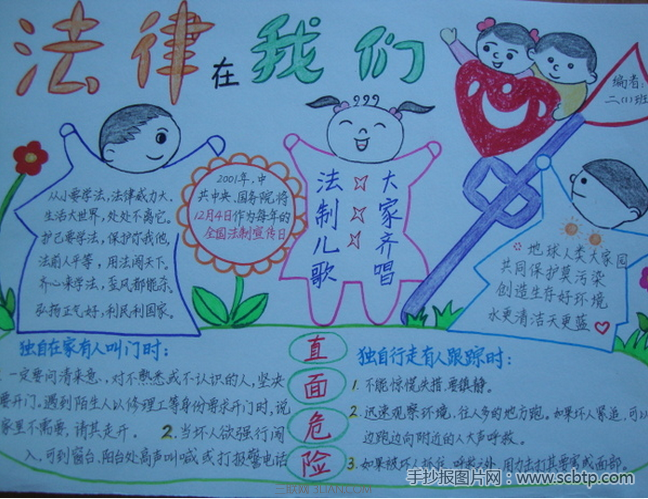 法律在我们
编者:
二(1)班
从小要学法,法律威力大。
生活大世界,处处不离它。
护己要学法,保护你我他,
法前人平等,用法闯天下。
齐心来学法,歪风都能杀。
弘扬正气好,利民利国家。
2001年,中
共中央、国务院,将
12月4日作为每年的
全国法制宣传日
法制儿歌
大家齐唱
地球人类大家园
共同保护莫污染
创造生存好环境
水更清洁天更蓝
直面危险
独自在家有人叫门时:
一定要问清来意,对不熟悉或不认识的人,坚决
要开门。遇到陌生人以修理工等身份要求开门时,说
家里不需要,请其走开。2.当坏人欲强行闯
入,可到窗台、阳台处高声叫喊或打报警电话
独自行走有人跟踪时:
1.不能惊慌失措,要镇静。
2.迅速观察环境,往人多的地方跑。如果坏人紧追,可以
边跑边向附近的人大声呼救。
3.如果被坏人抓住,呼救之外,用力击打其要害或面部。
手抄报图片网-www.scbtp.com